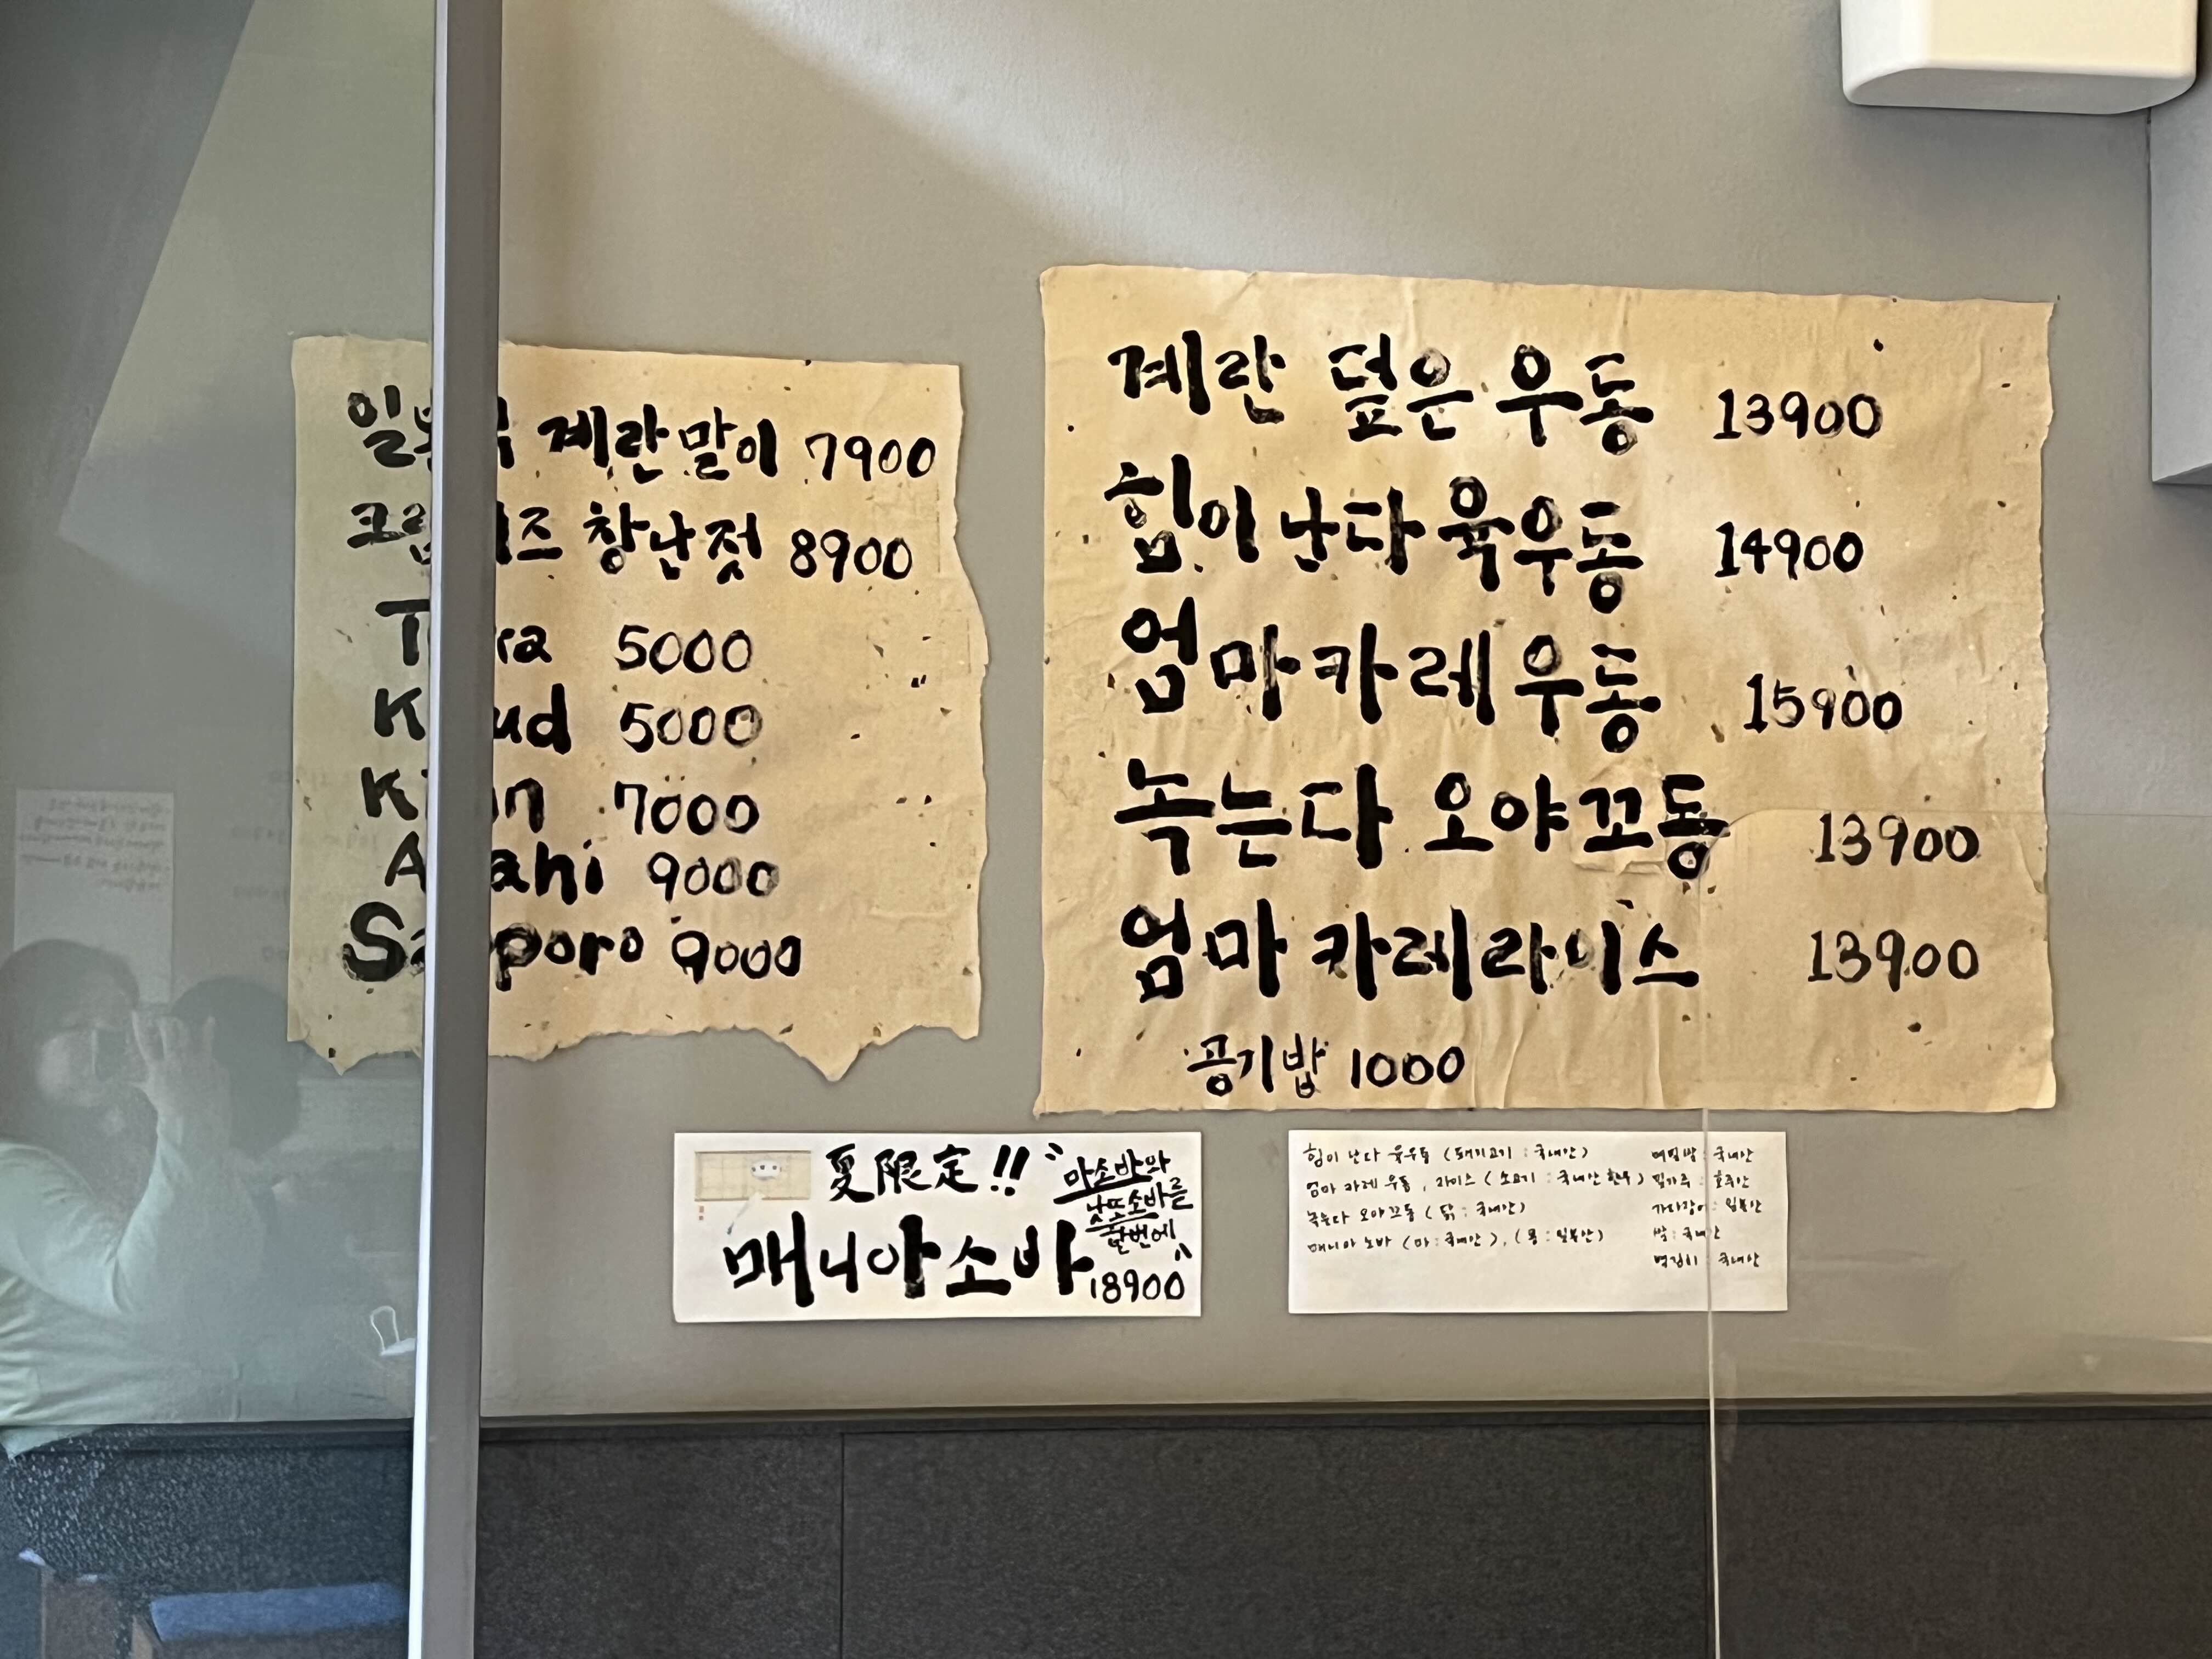 계란말이 7900
창난젓 8900
5000
5000
7000
9000
Sapporo 9000
계란 덮은 우동 13900
힘이 난다 육우동 14900
엄마카레우동 15900
녹는다 오야꼬동 13900
엄마 카레라이스 13900
공기밥 1000
夏限定!!
"마소바와
낫또소바를
한번에"
매니아소바 18900
힘이 난다 육우동 (돼지고기 : 국내산)
엄마 카레 우동, 라이스 (소고기 : 국내산 한우)
녹는다 오야꼬동 (닭 : 국내산)
매니아 소바 (마 : 국내산), (콩 : 일본산)
국내산
호주산
일본산
쌀 : 국내산
국내산